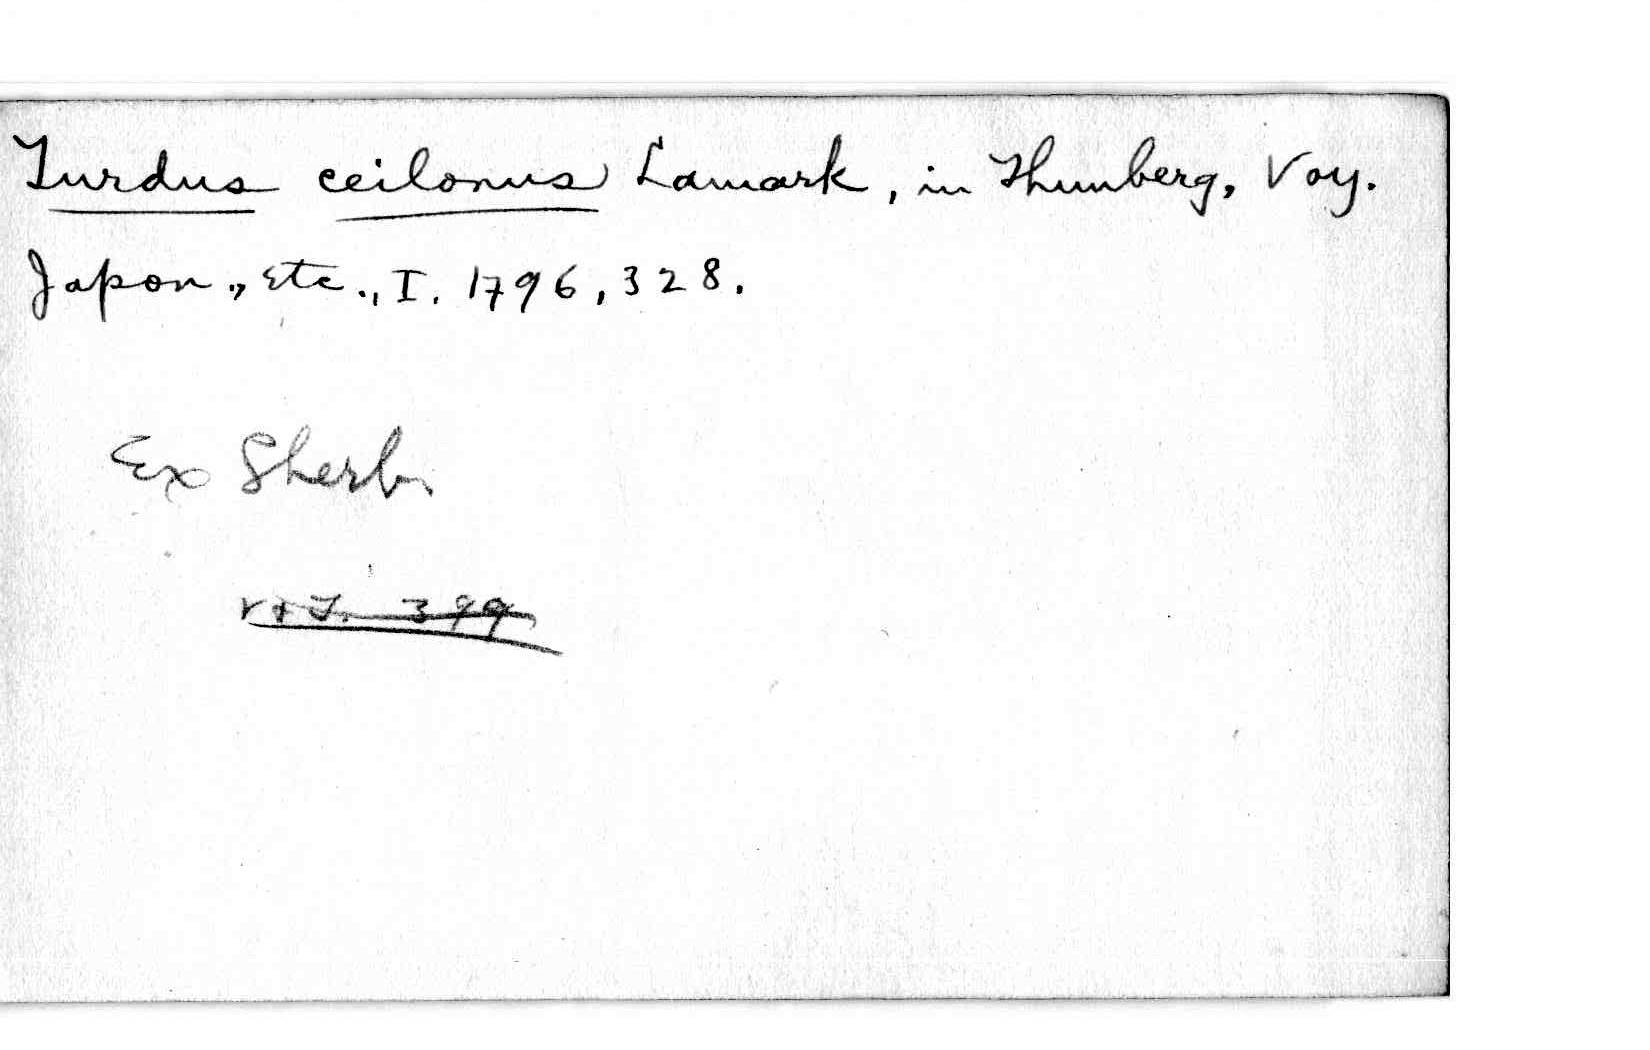 Turdus ceilonus Lamark, in Thunberg, Voy.
Japon., etc., I. 1796, 328.
Ex Sherb.
V+T. 399